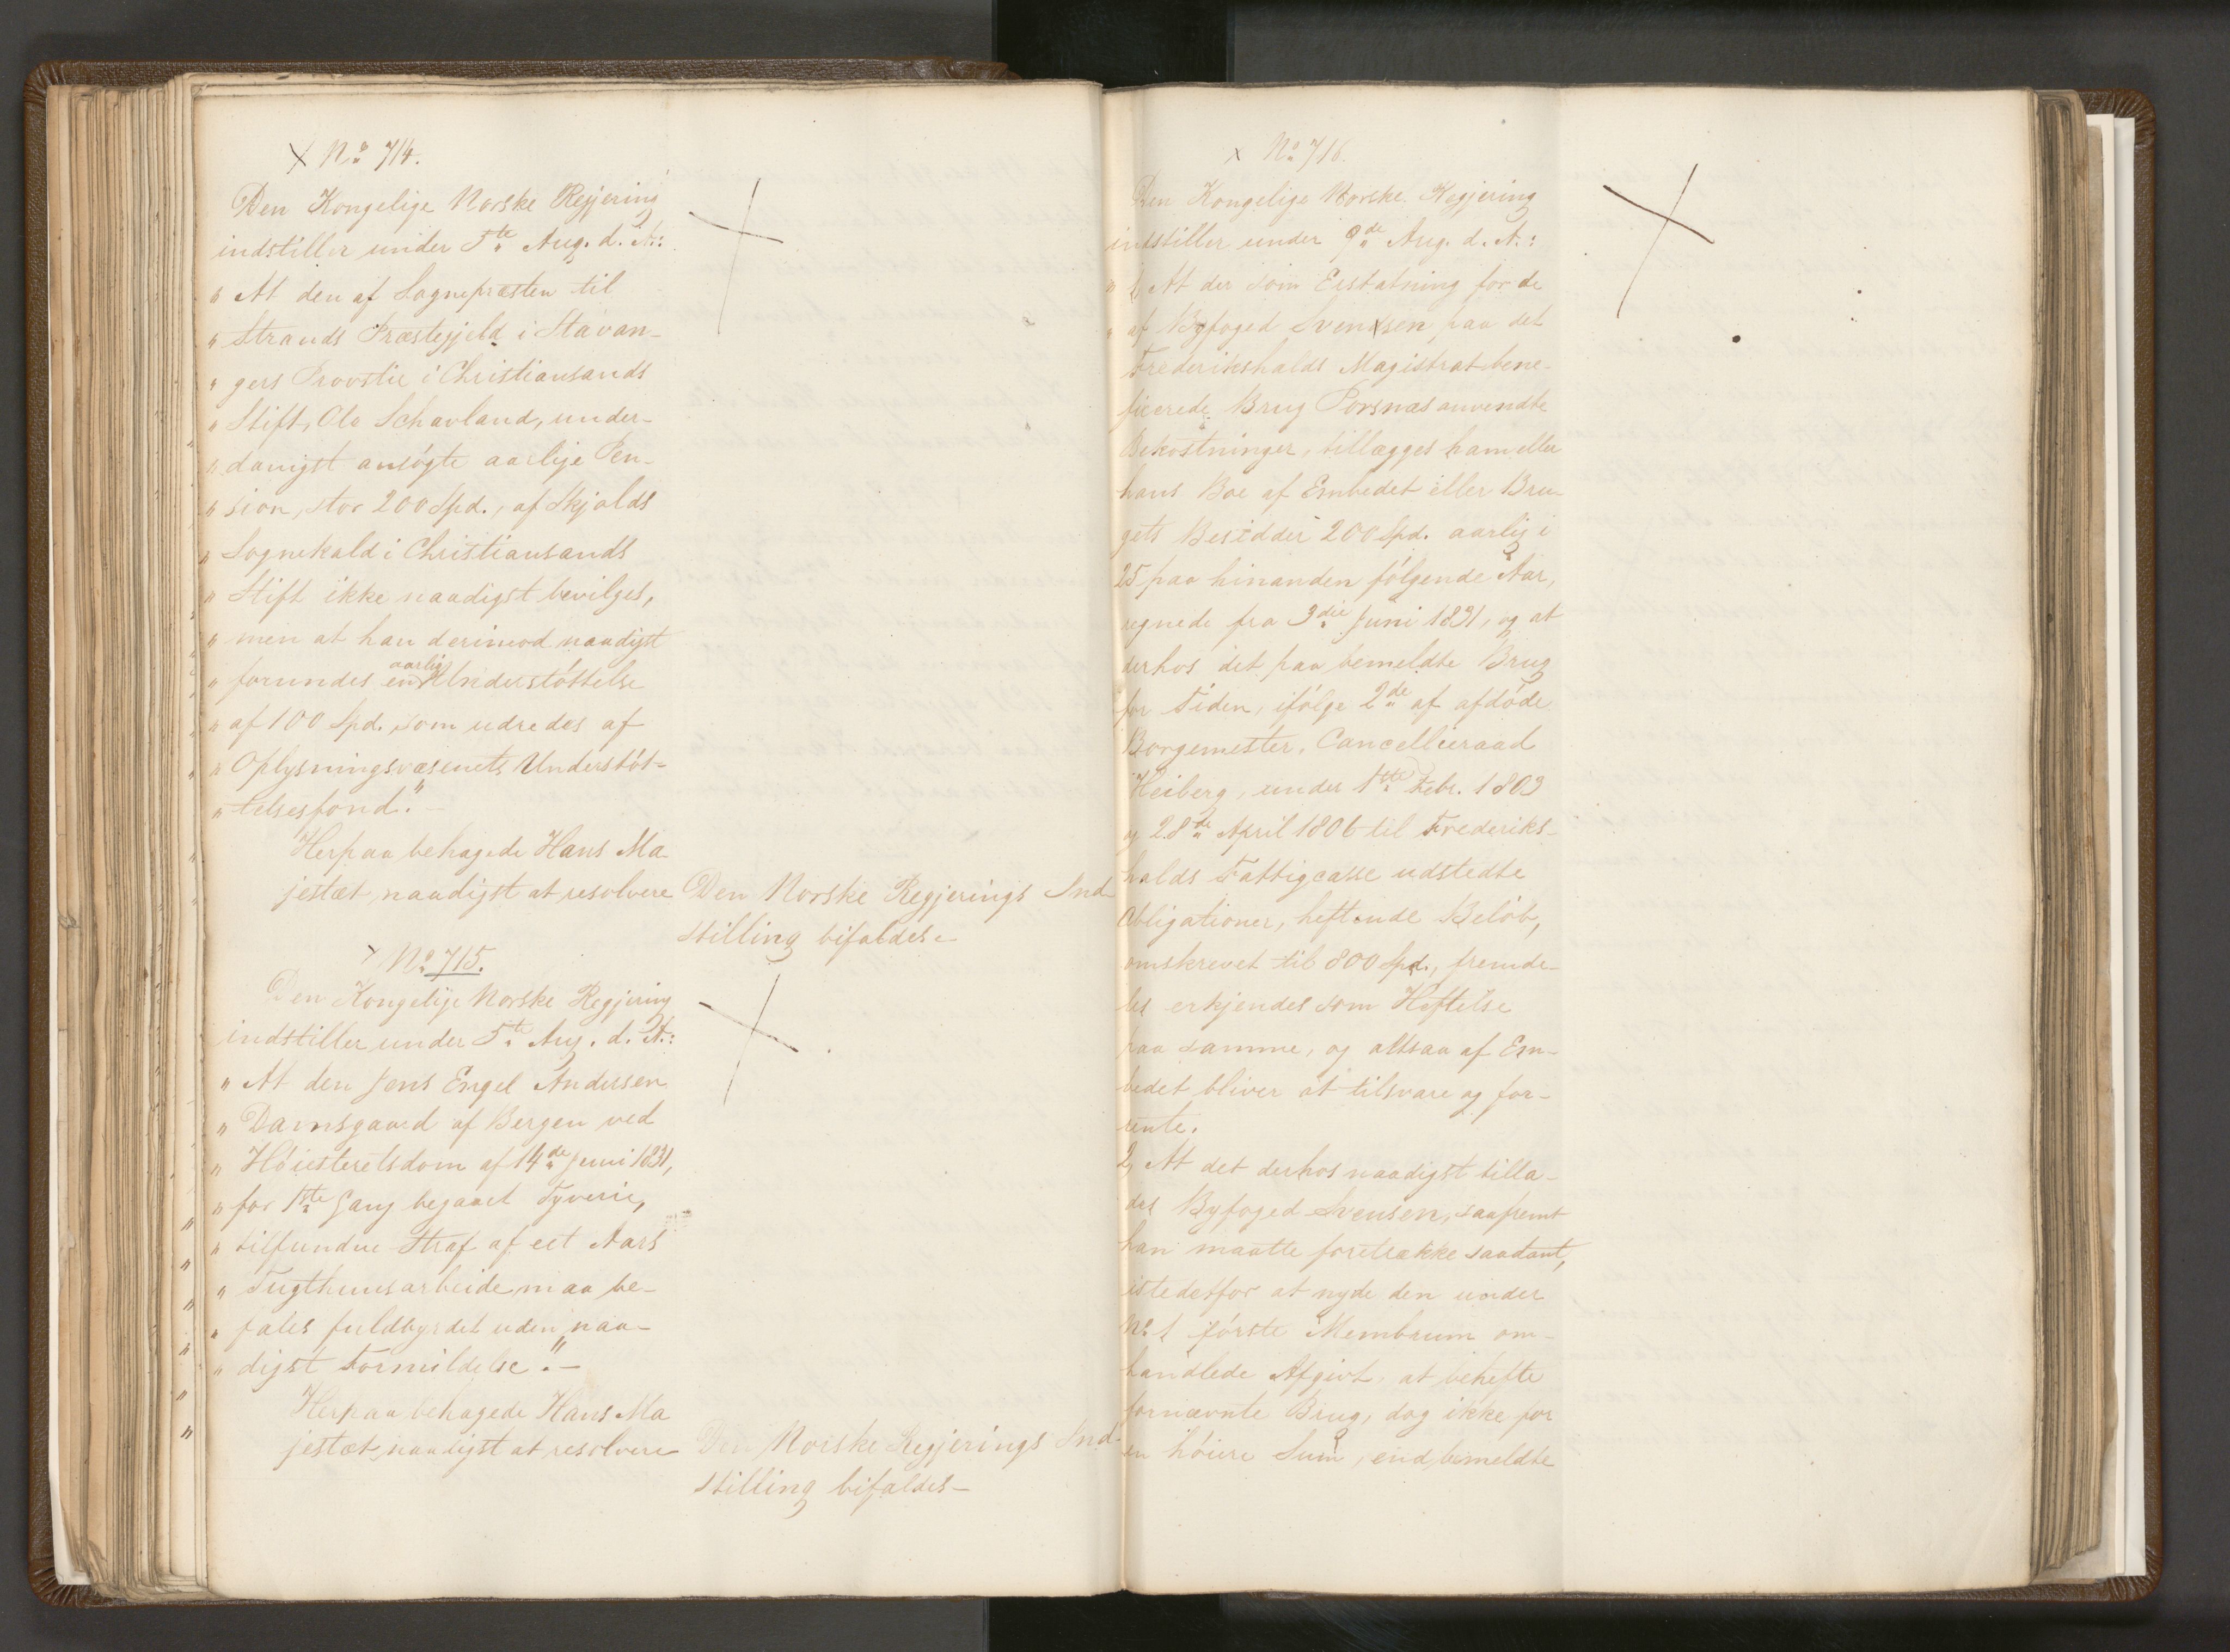 No 714.
Den Kongelige Norske Regjering
indstiller under 5te Aug. d. A.:
" At den af Sognepræsten til
" Strands Præstegjeld i Stavan-
" gers Provstie i Christiansands
" Stift, Ole Schavland, under-
" danigst ansøgte aarlige Pen-
" sion, stor 200 Spd., af Skjolds
" Sognekald i Christiansands
" Stift ikke naadigst bevilges,
" men at han derimod naadigst
" forundes en aarlig Understøttelse
" af 100 Spd. som udredes af
" Oplysningsvæsenets Understøt-
" telsesfond."-
Herpaa behagede Hans Ma
jestæt naadigst at resolvere
Den Norske Regjerings Ind
stilling bifaldes.-
No 715.
Den Kongelige Norske Regjering
indstiller under 5te Aug. d. A.:
" At den Jens Engel Andersen
" Damsgaard af Bergen ved
" Høiesteretsdom af 14de Juni 1831,
" for 1ste Gang begaaet Tyverie,
" tilfundne Straf af eet Aars
" Tugthuusarbeide maa be-
" fales fuldbyrdet uden naa-
" digst Formildelse".-
Herpaa behagede Hans Ma
jestæt naadigst at resolvere
Den Norske Regjerings Ind-
stilling bifaldes-
No 716.
Den Kongelige Norske Regjering
indstiller under 9de Aug. d. A.:
" 1, At der som Erstatning for de
" af Byfoged Svendsen paa det
Frederikshalds Magistrat bene-
ficerede Brug Porsnæs anvendte
Bekostninger, tillægges ham eller
hans Boe af Embedet eller Bru-
gets Besidder 200 Spd. aarlig i
25 paa hinanden følgende Aar,
regnede fra 3die Juni 1831, og at
derhos det paa bemeldte Brug
for Tiden, ifølge 2de af afdøde
Borgemester, Cancellieraad
Heiberg, under 1ste Febr. 1803
og 28de April 1806 til Frederiks-
halds Fattigcasse udstedte
Obligationer, heftende Beløb,
omskrevet til 800 Spd., fremde-
les erkjendes som Heftelse
paa samme, og altsaa af Em-
bedet bliver at tilsvare og for-
rente.
2, At det derhos naadigst tilla-
des Byfoged Svensen, saafremt
han maatte foretrække saadant,
istedetfor at nyde den under
No 1 første Membrum om-
handlede Afgivt, at behefte
fornævnte Brug, dog ikke for
en høiere Sum, end bemeldte